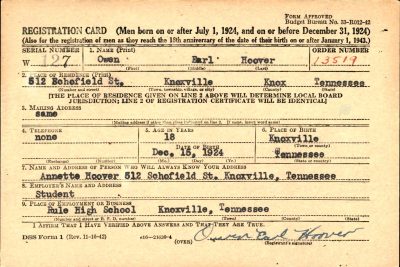 Form Approved
Budget Bureau No. 33-R012-42
REGISTRATION CARD (Men born on or after July 1, 1924, and on or before December 31, 1924)
(Also for the registration of men as they reach the 18th anniversary of the date of their birth on or after January 1, 1943.)
SERIAL NUMBER 1. NAME (Print) ORDER NUMBER
W 127 Owen Earl Hoover 13519
(First) (Middle) (Last)
2. PLACE OF RESIDENCE (Print)
512 Schofield St. Knoxville Knox Tennessee
(Number and street) (Town, township, village, or city) (County) (State)
[THE PLACE OF RESIDENCE GIVEN ON LINE 2 ABOVE WILL DETERMINE LOCAL BOARD
JURISDICTION; LINE 2 OF REGISTRATION CERTIFICATE WILL BE IDENTICAL]
3. MAILING ADDRESS
same
4. TELEPHONE 5. AGE IN YEARS 6. PLACE OF BIRTH
none 18 Knoxville
DATE OF BIRTH (Town or county)
Dec. 15, 1924 Tennessee
(Exchange) (Number) (Mo.) (Day) (Yr.) (State or country)
7. NAME AND ADDRESS OF PERSON WHO WILL ALWAYS KNOW YOUR ADDRESS
Annette Hoover 512 Schofield St. Knoxville, Tennessee
8. EMPLOYER'S NAME AND ADDRESS
Student
9. PLACE OF EMPLOYMENT OR BUSINESS
Rule High School Knoxville, Tennessee
(Number and street or R. F. D. number) (Town) (County) (State)
I AFFIRM THAT I HAVE VERIFIED ABOVE ANSWERS AND THAT THEY ARE TRUE.
DSS Form 1 (Rev. 11-16-42) (OVER) Owen Earl Hoover
(Registrant's signature)